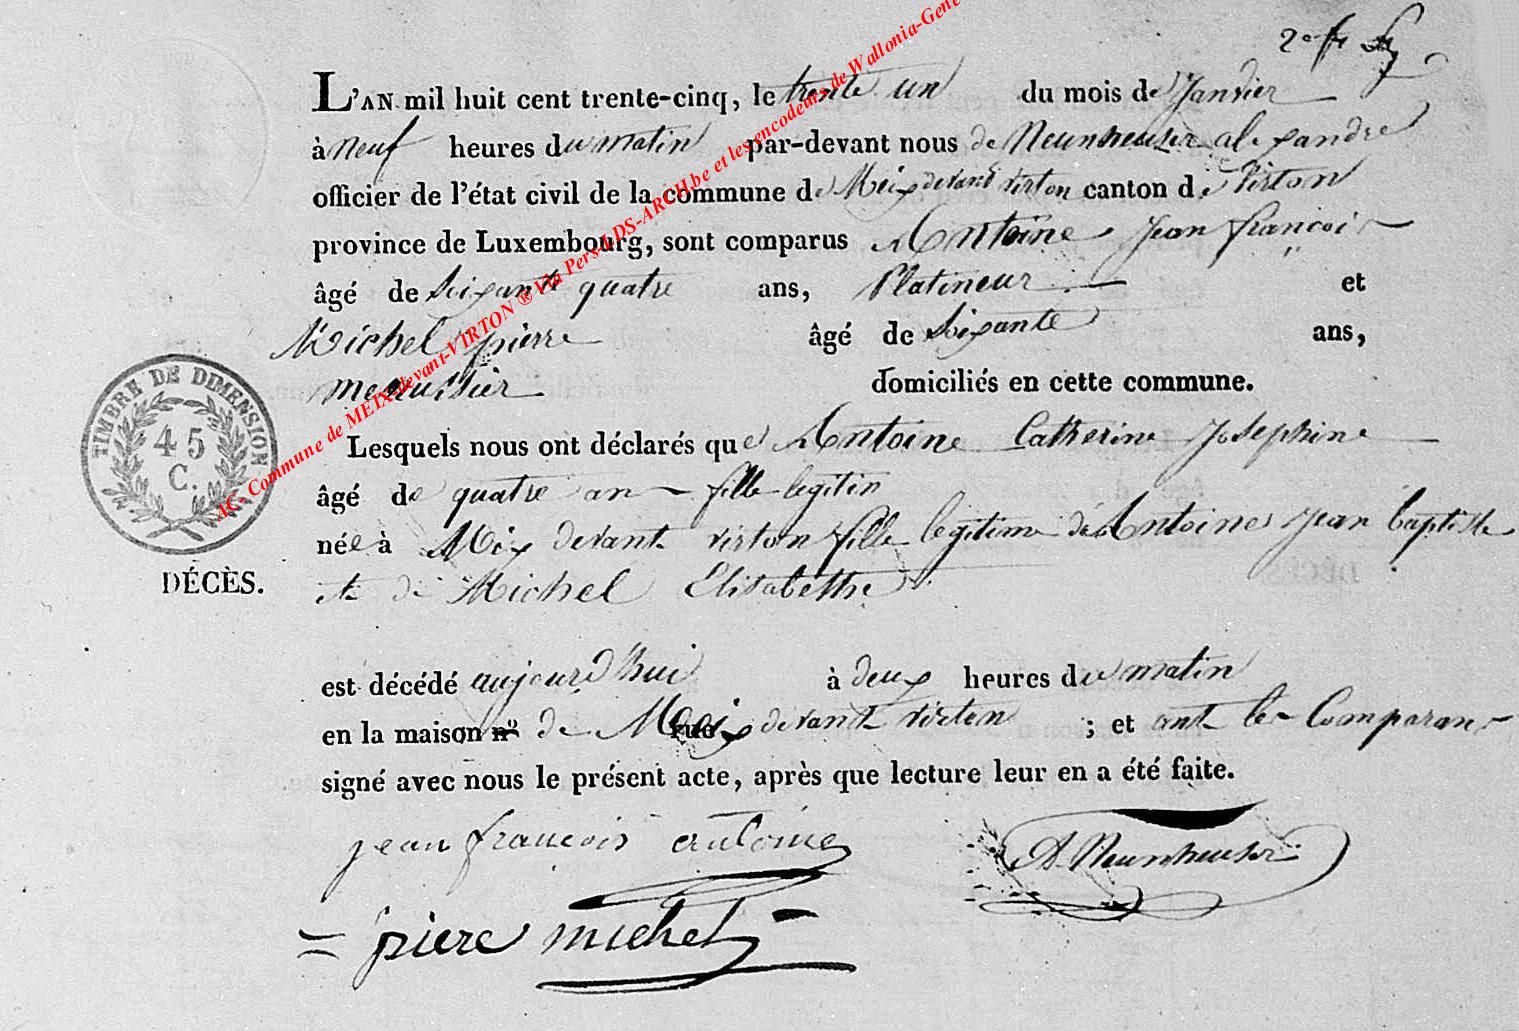 L'AN mil huit cent trente-cinq, le trente un du mois de Janvier
à neuf heures du matin par-devant nous de Neunheuser alexandre
officier de l'état civil de la commune de Meix devant virton canton de virton
province de Luxembourg, sont comparus Antoine Jean françois
âgé de Soixante quatre ans, Platineur et
Michel pierre âgé de Soixante ans,
menuisier domiciliés en cette commune.
Lesquels nous ont déclarés que Antoine Catherine Josephine
âgé de quatre an fille legitim
née à Meix devant virton fille legitime de Antoine Jean baptiste
et de Michel Elisabethe
DÉCÈS.
est décédé aujourd'hui à deux heures du matin
en la maison nº de Meix rue devant virton ; et ont les Comparans
signé avec nous le présent acte, après que lecture leur en a été faite.
jean françois antoine
A. Neunheuser
piere michel
TIMBRE DE DIMENSION
45
C.
AC- Commune de MEIX-devant-VIRTON ® Via Pers-LDS-ARCH.be et les encodeurs de Wallonia-Gene